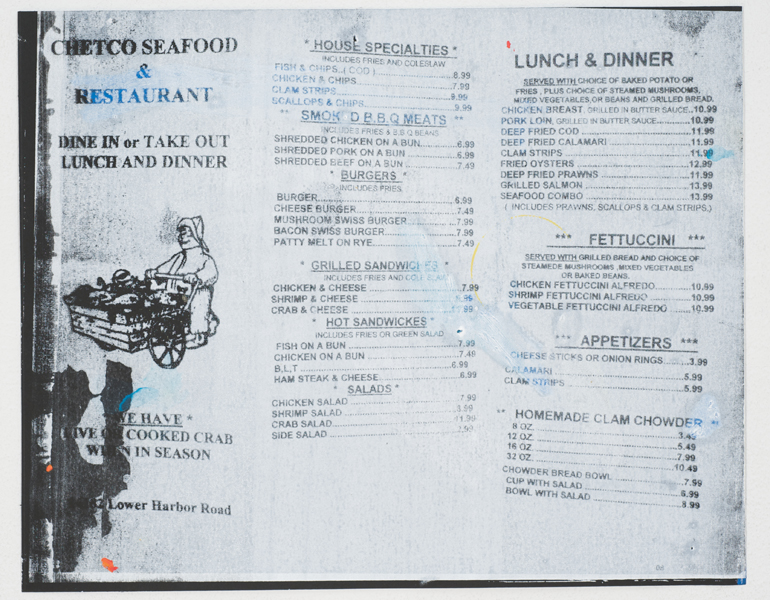 CHETCO SEAFOOD
&
RESTAURANT
DINE IN or TAKE OUT
LUNCH AND DINNER
WE HAVE *
LIVE OR COOKED CRAB
WHEN IN SEASON
Lower Harbor Road
* HOUSE SPECIALTIES *
INCLUDES FRIES AND COLESLAW
FISH & CHIPS..( COD ) 8.99
CHICKEN & CHIPS 7.99
CLAM STRIPS 9.99
SCALLOPS & CHIPS 9.99
** SMOK D B.B.Q MEATS **
INCLUDES FRIES & B.B.Q BEANS
SHREDDED CHICKEN ON A BUN 6.99
SHREDDED PORK ON A BUN 6.99
SHREDDED BEEF ON A BUN 7.49
* BURGERS *
INCLUDES FRIES
BURGER 6.99
CHEESE BURGER 7.49
MUSHROOM SWISS BURGER 7.99
BACON SWISS BURGER 7.99
PATTY MELT ON RYE 7.49
* GRILLED SANDWICHES *
INCLUDES FRIES AND COLESLAW
CHICKEN & CHEESE 7.99
SHRIMP & CHEESE
CRAB & CHEESE
* HOT SANDWICKES *
INCLUDES FRIES OR GREEN SALAD
FISH ON A BUN 7.99
CHICKEN ON A BUN 7.49
B,L,T 6.99
HAM STEAK & CHEESE 6.99
* SALADS *
CHICKEN SALAD 7.99
SHRIMP SALAD
CRAB SALAD 11.99
SIDE SALAD
LUNCH & DINNER
SERVED WITH CHOICE OF BAKED POTATO OR
FRIES , PLUS CHOICE OF STEAMED MUSHROOMS,
MIXED VEGETABLES, OR BEANS AND GRILLED BREAD.
CHICKEN BREAST, GRILLED IN BUTTER SAUCE 10.99
PORK LOIN, GRILLED IN BUTTER SAUCE 10.99
DEEP FRIED COD 11.99
DEEP FRIED CALAMARI 11.99
CLAM STRIPS 11.99
FRIED OYSTERS 12.99
DEEP FRIED PRAWNS 11.99
GRILLED SALMON 13.99
SEAFOOD COMBO 13.99
( INCLUDES PRAWNS, SCALLOPS & CLAM STRIPS.)
*** FETTUCCINI ***
SERVED WITH GRILLED BREAD AND CHOICE OF
STEAMEDE MUSHROOMS ,MIXED VEGETABLES
OR BAKED BEANS.
CHICKEN FETTUCCINI ALFREDO 10.99
SHRIMP FETTUCCINI ALFREDO 10.99
VEGETABLE FETTUCCINI ALFREDO 10.99
*** APPETIZERS ***
CHEESE STICKS OR ONION RINGS 3.99
CALAMARI 5.99
CLAM STRIPS 5.99
** HOMEMADE CLAM CHOWDER **
8 OZ. 3.49
12 OZ. 5.49
16 OZ. 7.99
32 OZ. 10.49
CHOWDER BREAD BOWL 7.99
CUP WITH SALAD 6.99
BOWL WITH SALAD 8.99